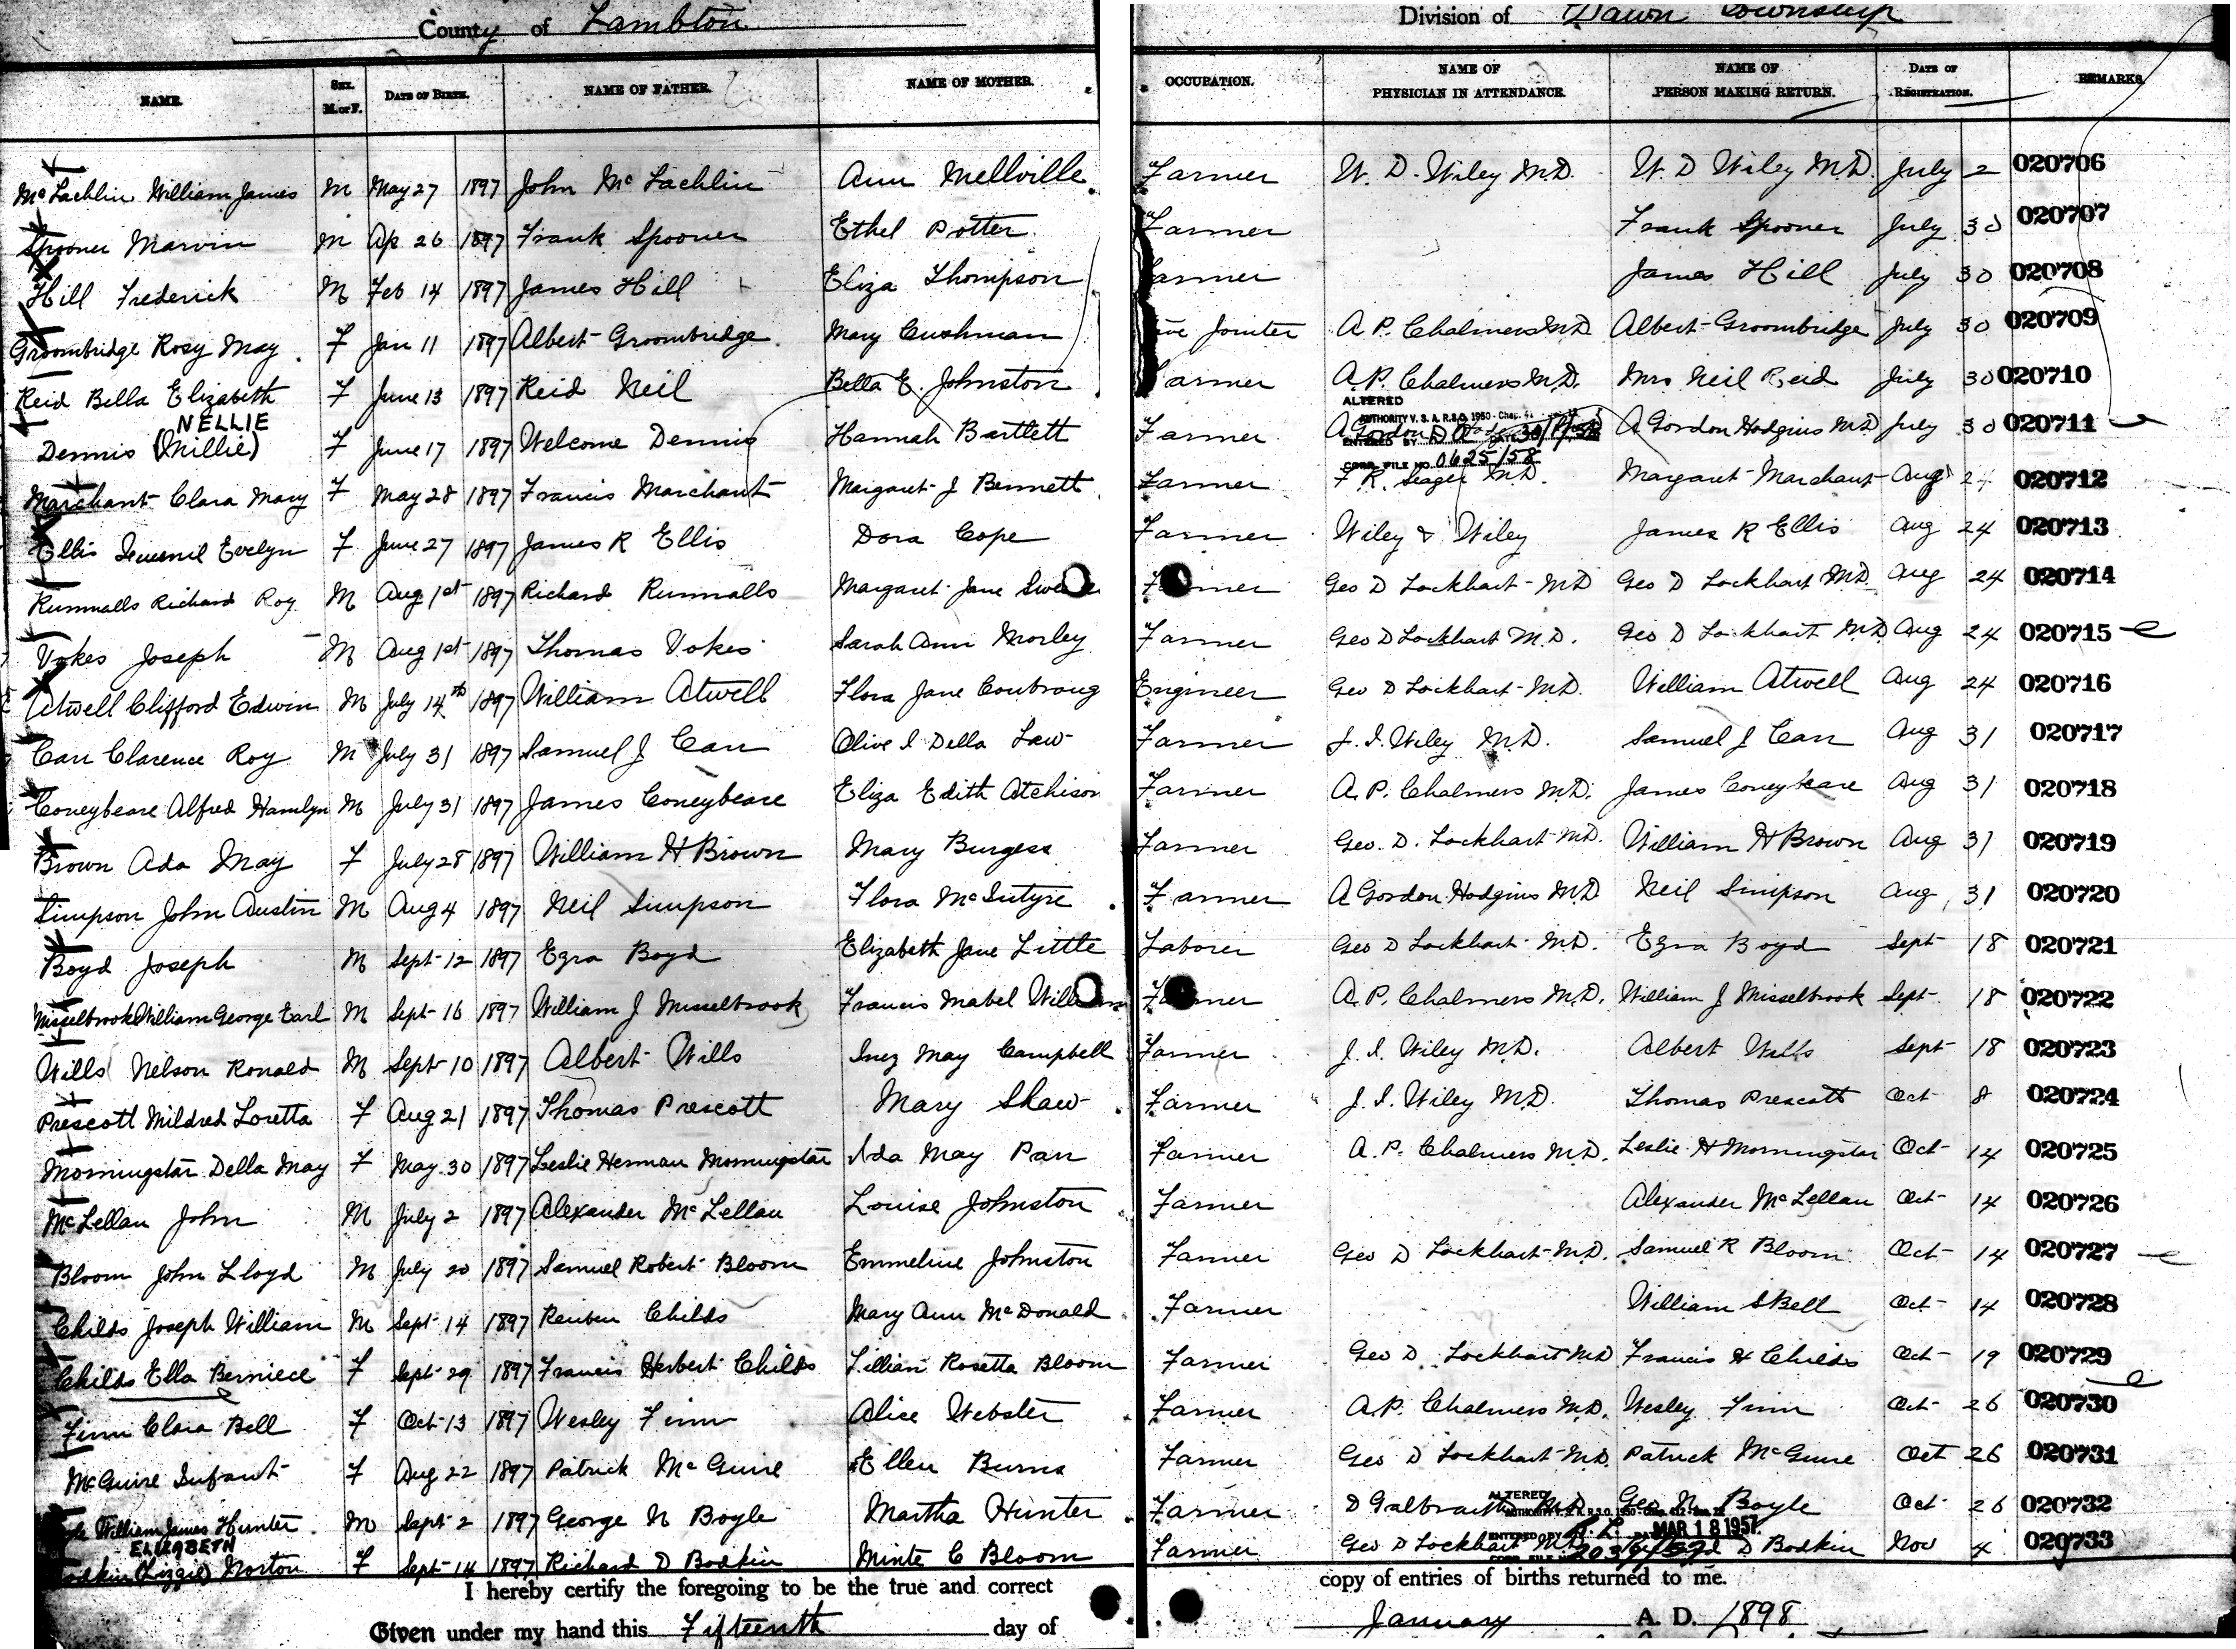 County of Lambton Division of Dawn Township
NAME. SEX. M. or F. DATE OF BIRTH. NAME OF FATHER. NAME OF MOTHER. OCCUPATION. NAME OF PHYSICIAN IN ATTENDANCE. NAME OF PERSON MAKING RETURN. DATE OF REGISTRATION. REMARKS.
McLachlin William James M May 27 1897 John McLachlin Ann Mellville Farmer W. D. Wiley M.D. W. D Wiley M.D. July 2 020706
Spooner Marvin M Ap 26 1897 Frank Spooner Ethel Potter Farmer Frank Spooner July 30 020707
Hill Frederick M Feb 14 1897 James Hill Eliza Thompson Farmer James Hill July 30 020708
Groombridge Rosy May F Jan 11 1897 Albert Groombridge Mary Cushman Jointer A. P. Chalmers M.D. Albert Groombridge July 30 020709
Reid Bella Elizabeth F June 13 1897 Reid Neil Bella E. Johnston Farmer A. P. Chalmers M.D. Mrs Neil Reid July 30 020710
NELLIE ALTERED
Dennis (Millie) F June 17 1897 Welcome Dennis Hannah Bartlett Farmer A Gordon A Gordon Hodgins M.D July 30 020711
CORR. FILE NO. 0625/58
Marchant Clara Mary F May 28 1897 Francis Marchant Margaret J Bennett Farmer F R. Seager M.D. Margaret Marchant Aug 24 020712
Ellis Evelyn F June 27 1897 James R Ellis Dora Cope Farmer Wiley & Wiley James R Ellis Aug 24 020713
Runnalls Richard Roy M Aug 1st 1897 Richard Runnalls Margaret Jane Farmer Geo D Lockhart M.D Geo D Lockhart M.D. Aug 24 020714
Vokes Joseph M Aug 1st 1897 Thomas Vokes Sarah Ann Morley Farmer Geo D Lockhart M.D. Geo D Lockhart M.D Aug 24 020715
Atwell Clifford Edwin M July 14th 1897 William Atwell Flora Jane Coubroug Engineer Geo D Lockhart M.D. William Atwell Aug 24 020716
Carr Clarence Roy M July 31 1897 Samuel J Carr Olive I Della Law Farmer J. I. Wiley M.D. Samuel J Carr Aug 31 020717
Coneybeare Alfred Hamlyn M July 31 1897 James Coneybeare Eliza Edith Atchison Farmer A. P. Chalmers M.D. James Coneybeare Aug 31 020718
Brown Ada May F July 28 1897 William H Brown Mary Burgess Farmer Geo. D. Lockhart M.D. William H Brown Aug 31 020719
Simpson John Austin M Aug 4 1897 Neil Simpson Flora McIntyre Farmer A Gordon Hodgins M.D Neil Simpson Aug 31 020720
Boyd Joseph M Sept 12 1897 Ezra Boyd Elizabeth Jane Little Laborer Geo D Lockhart M.D. Ezra Boyd Sept 18 020721
Misselbrook William George Earl M Sept 16 1897 William J Misselbrook Francis Mabel Farmer A. P. Chalmers M.D. William J Misselbrook Sept 18 020722
Wills Nelson Ronald M Sept 10 1897 Albert Wills Inez May Campbell Farmer J. I. Wiley M.D. Albert Wills Sept 18 020723
Prescott Mildred Loretta F Aug 21 1897 Thomas Prescott Mary Shaw Farmer J. I. Wiley M.D. Thomas Prescott Oct 8 020724
Morningstar Della May F May 30 1897 Leslie Herman Morningstar Ada May Parr Farmer A. P. Chalmers M.D. Leslie H Morningstar Oct 14 020725
McLellan John M July 2 1897 Alexander McLellan Louise Johnston Farmer Alexander McLellan Oct 14 020726
Bloom John Lloyd M July 20 1897 Samuel Robert Bloom Emmeline Johnston Farmer Geo D Lockhart M.D. Samuel R Bloom Oct 14 020727
Childs Joseph William M Sept 14 1897 Reuben Childs Mary Ann McDonald Farmer William S Bell Oct 14 020728
Childs Ella Berniece F Sept 29 1897 Francis Herbert Childs Lillian Rosetta Bloom Farmer Geo D. Lockhart M.D Francis H Childs Oct 19 020729
Finn Clara Bell F Oct 13 1897 Wesley Finn Alice Webster Farmer A. P. Chalmers M.D. Wesley Finn Oct 26 020730
McGuire Infant F Aug 22 1897 Patrick McGuire Ellen Burns Farmer Geo D Lockhart M.D. Patrick McGuire Oct 26 020731
ALTERED
William James Hunter M Sept 2 1897 George N Boyle Martha Hunter Farmer D Galbraith M.D Geo N. Boyle Oct 26 020732
ELIZABETH MAR 18 1957
(Lizzie) Norton F Sept 14 1897 Richard D Bodkin Minte C Bloom Farmer Geo D Lockhart M.D. D Bodkin Nov 4 020733
I hereby certify the foregoing to be the true and correct copy of entries of births returned to me.
Given under my hand this Fifteenth day of January A. D. 1898